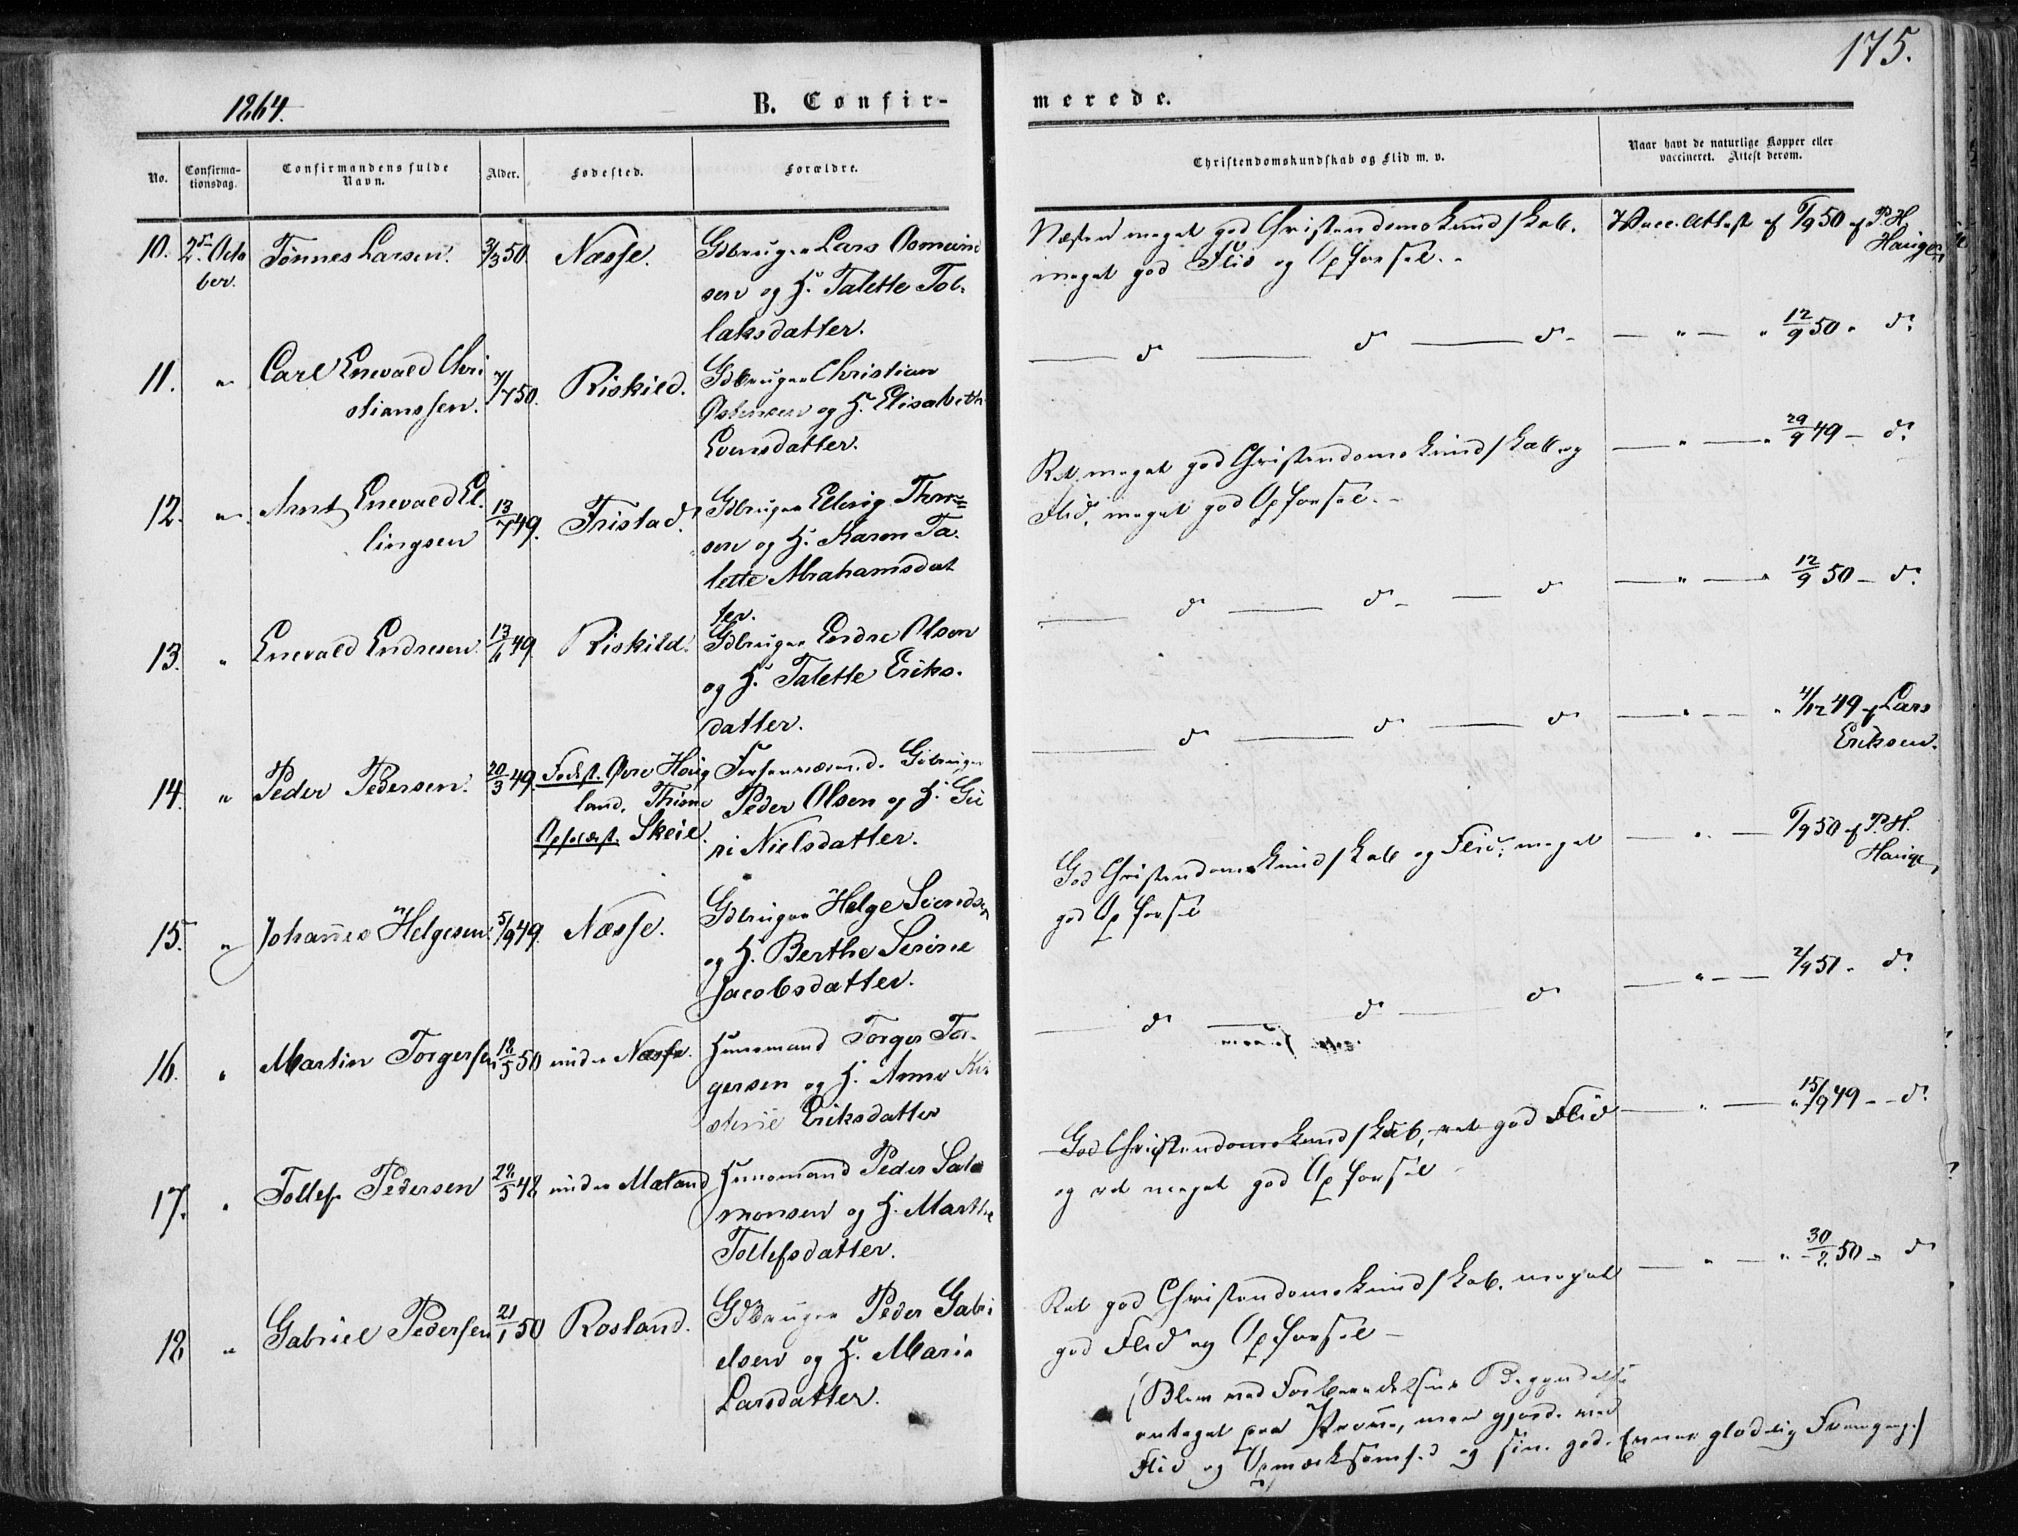 175.
1864.
B. Confir-
merede.
No.
Confirma-
tionsdag.
Confirmandens fulde
Navn.
Alder.
Fødested.
Forældre.
Christendomskundskab og Flid m. v.
Naar havt de naturlige Kopper eller
vaccineret. Attest derom.
10. 2den Octo Tønnes Larsen. 3/3 50 Næsse. Gdbruger Lars Osmund
ber.
sen og H. Talette Tol-
laksdatter.
Næsten meget god Christendomskundskab.
meget god Flid og Opførsel.
Vacc. Attest af 6/9 50 af P. H.
Hauge
11. " Carl Enevald Chri 7/7 50. Riskild. Gdbruger Christian
stianssen.
Østensen og H. Elisabeth
Evensdatter.
do do do
" 12/9 50 do
12. " Arnt Enevald El- 13/7 49. Tristad. Gdbruger Elling Thom=
lingsen
sen og H. Karen Ta-
lette Abrahamsdat
ter.
Ret meget god Christendomskundskab og
Flid, meget god Opførsel.
" 29/9 49 do
13. " Enevald Endresen. 13/6 49. Riskild. Gdbruger Endre Olsen
og H. Talette Eriks-
datter.
do do do
" 12/9 50 do
14. " Peder Pedersen. 20/3 49. Fødest. Øvre Haug Forhenværende Gdbruger
land,
Opholdst. Skeie.
Peder Olsen og H. Gu
ri Nielsdatter.
do do do
" 4/12 49 af Lars
Eriksen.
15. " Johanes Helgesen. 5/9 49. Næsse. Gdbruger Helge Svends
og H. Berthe Serine
Jacobsdatter.
God Christendomskundskab og Flid, meget
god Opførsel
" 6/9 50 af P. H.
Hauge
16. " Martin Torgersen 18/5 50 under Næsse. Huusmand Torger Tor-
gersen og H. Anne Kir
stine Eriksdatter
do do do
" 2/9 51 do
17. " Tollef Pedersen 28/5 48 under Mæland Huusmand Peder Salo
monsen og H. Marthe
Tollefsdatter.
God Christendomskundskab, ret god Flid
og ret meget god Opførsel
" 15/9 49 do
18 " Gabriel Pedersen 21/1 50 Rosland. Gdbruger Peder Gabri
elsen og H. Maria
Larsdatter.
Ret god Christendomskundskab, meget
god Flid og Opførsel
" 30/2 50 do
(Blev ved Forberedelsens Begyndelse
antaget paa Prøve, men gjorde med
Flid og Opmærksomhed og sine gode Evner glædelig Fremgang.)